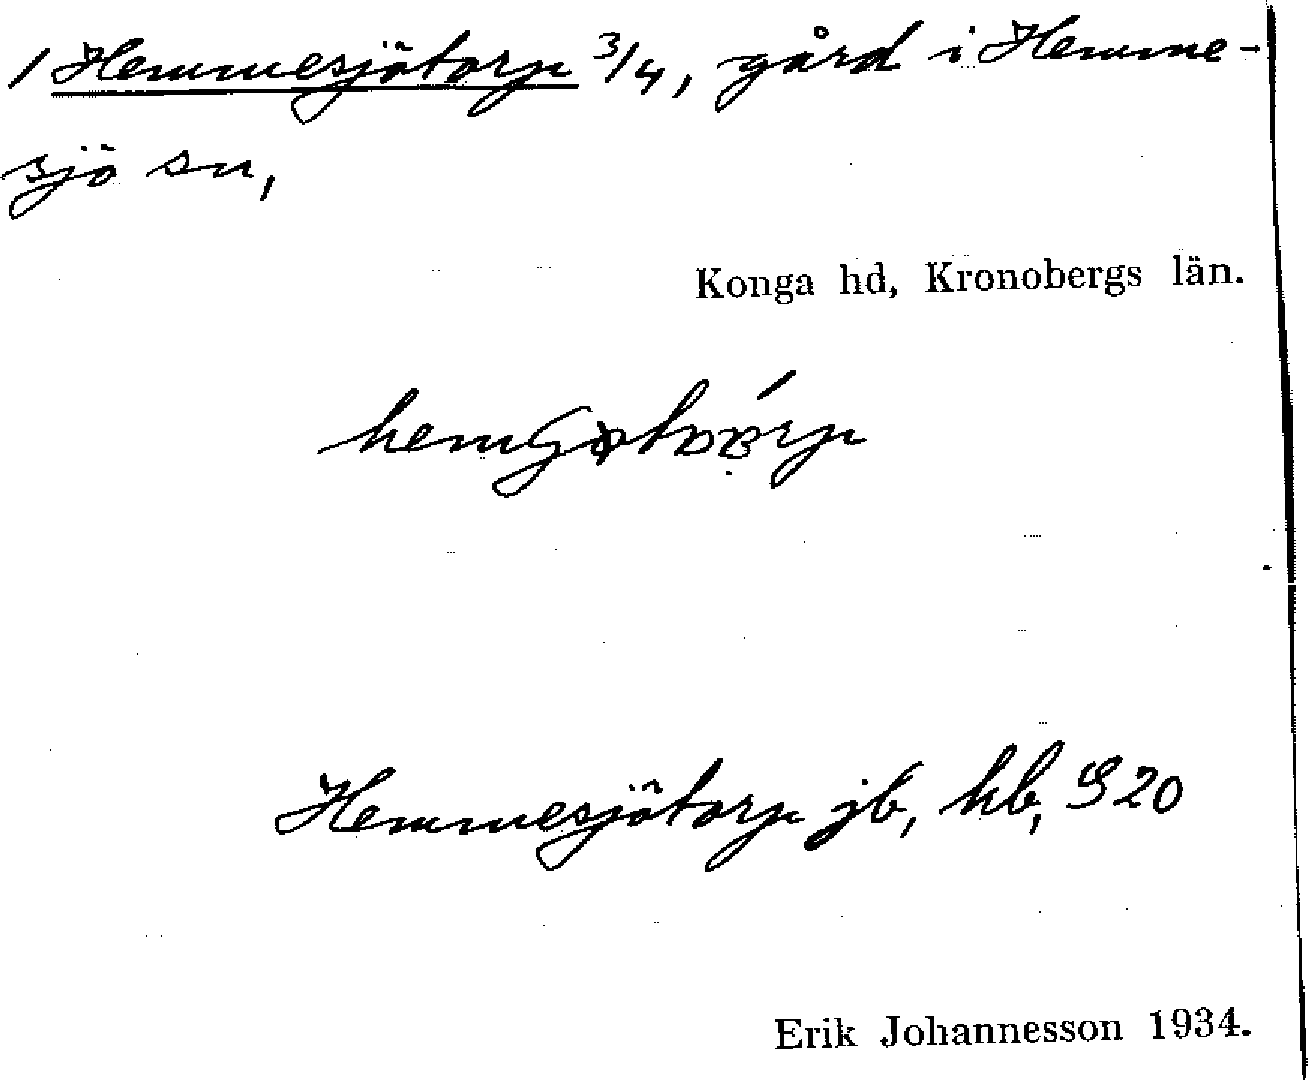 1 Hemmesjötorp 3/4, gård i Hemme-
sjö sn,
Konga hd, Kronobergs län.
Hemmesjötorp jb, hb, S 20
Erik Johannesson 1934.